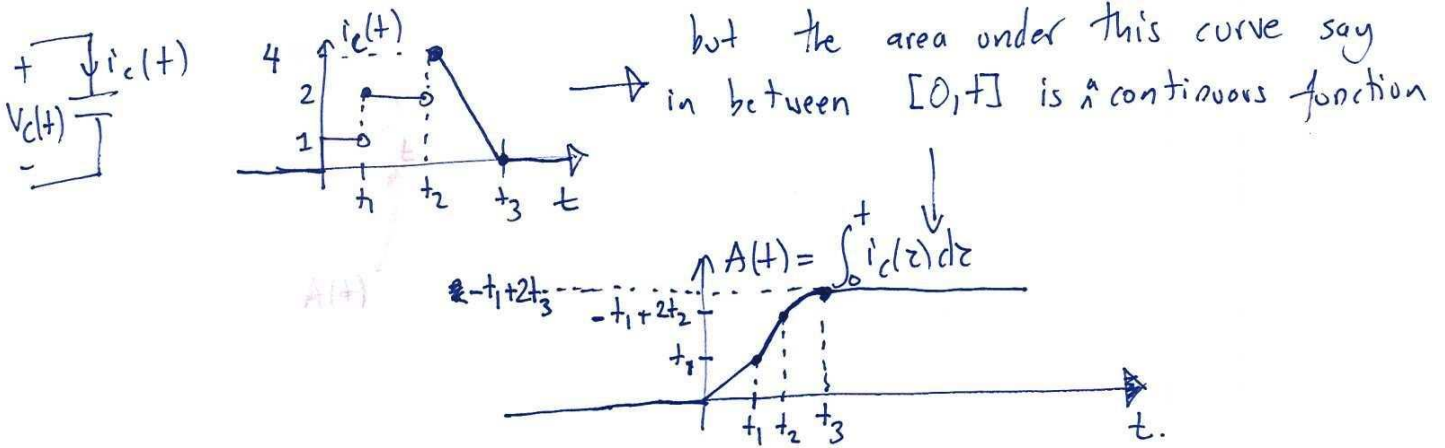 + i_c(t)
V_c(t)
-
4 i_c(t)
2
1
t_1 t_2 t_3 t
but the area under this curve say
in between [0,t] is a continuous function
A(t) = ∫_0^t i_c(τ)dτ
-t_1+2t_3
-t_1+2t_2
t_1
t_1 t_2 t_3 t.
A(t)
t